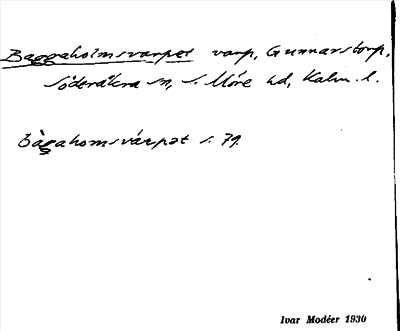 Baggaholmsvarpet varp, Gunnarstorp,
Söderåkra sn, s. Möre hd, Kalm. l.
bàgahomsvárpət s. 79.
Ivar Modéer 1930